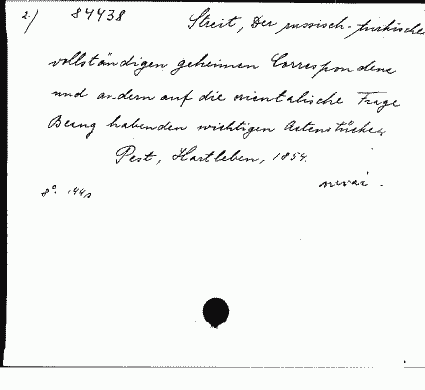 2./ 84438 Streit, Der russisch-türkische
vollständigen geheimen Correspondenz
und andern auf die orientalische Frage
Bezug habenden wichtigen Actenstücken
Pest, Hartleben, 1854.
8°.